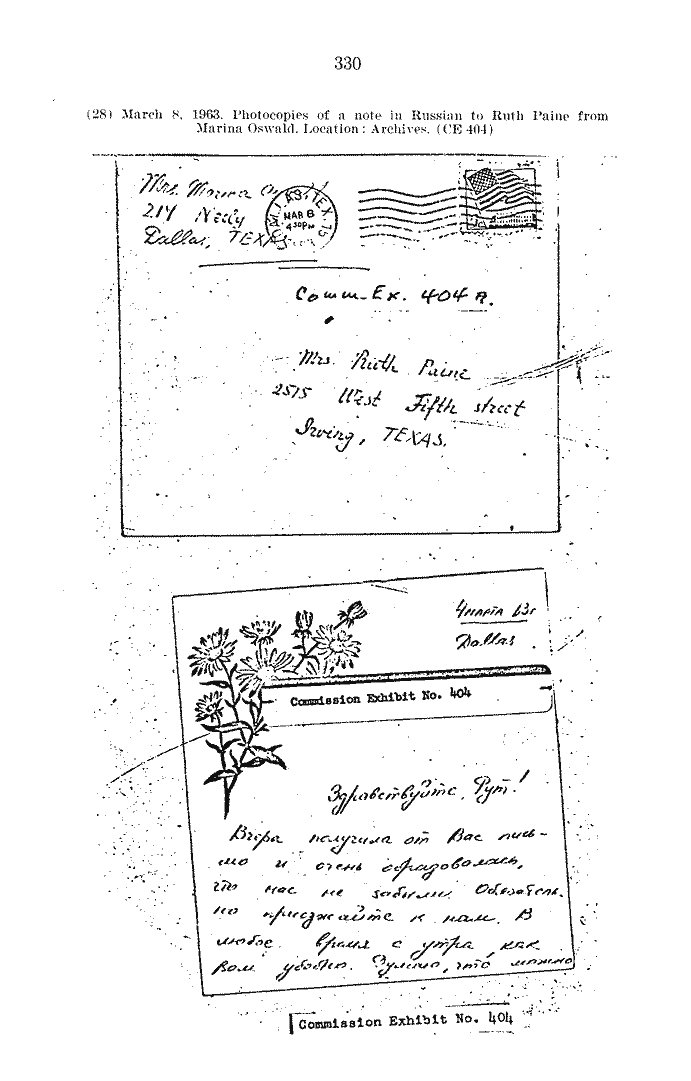 330
(28) March 8, 1963. Photocopies of a note in Russian to Ruth Paine from
Marina Oswald. Location: Archives. (CE 404)
Mrs. Marina
214 Neely
Dallas, TEXAS
DALLAS, TEX.
MAR 8
4 30 PM
Comm. Ex. 404 A.
Mrs. Ruth Paine
2515 West Fifth street
Irving, TEXAS.
4 марта 63г
Dallas
Commission Exhibit No. 404
Здравствуйте, Рут!
Вчера получила от Вас пись-
мо и очень обрадовалась,
что нас не забыли. Обязатель-
но приезжайте к нам. В
любое время с утра, как
Вам удобно. Думаю, что можно
Commission Exhibit No. 404